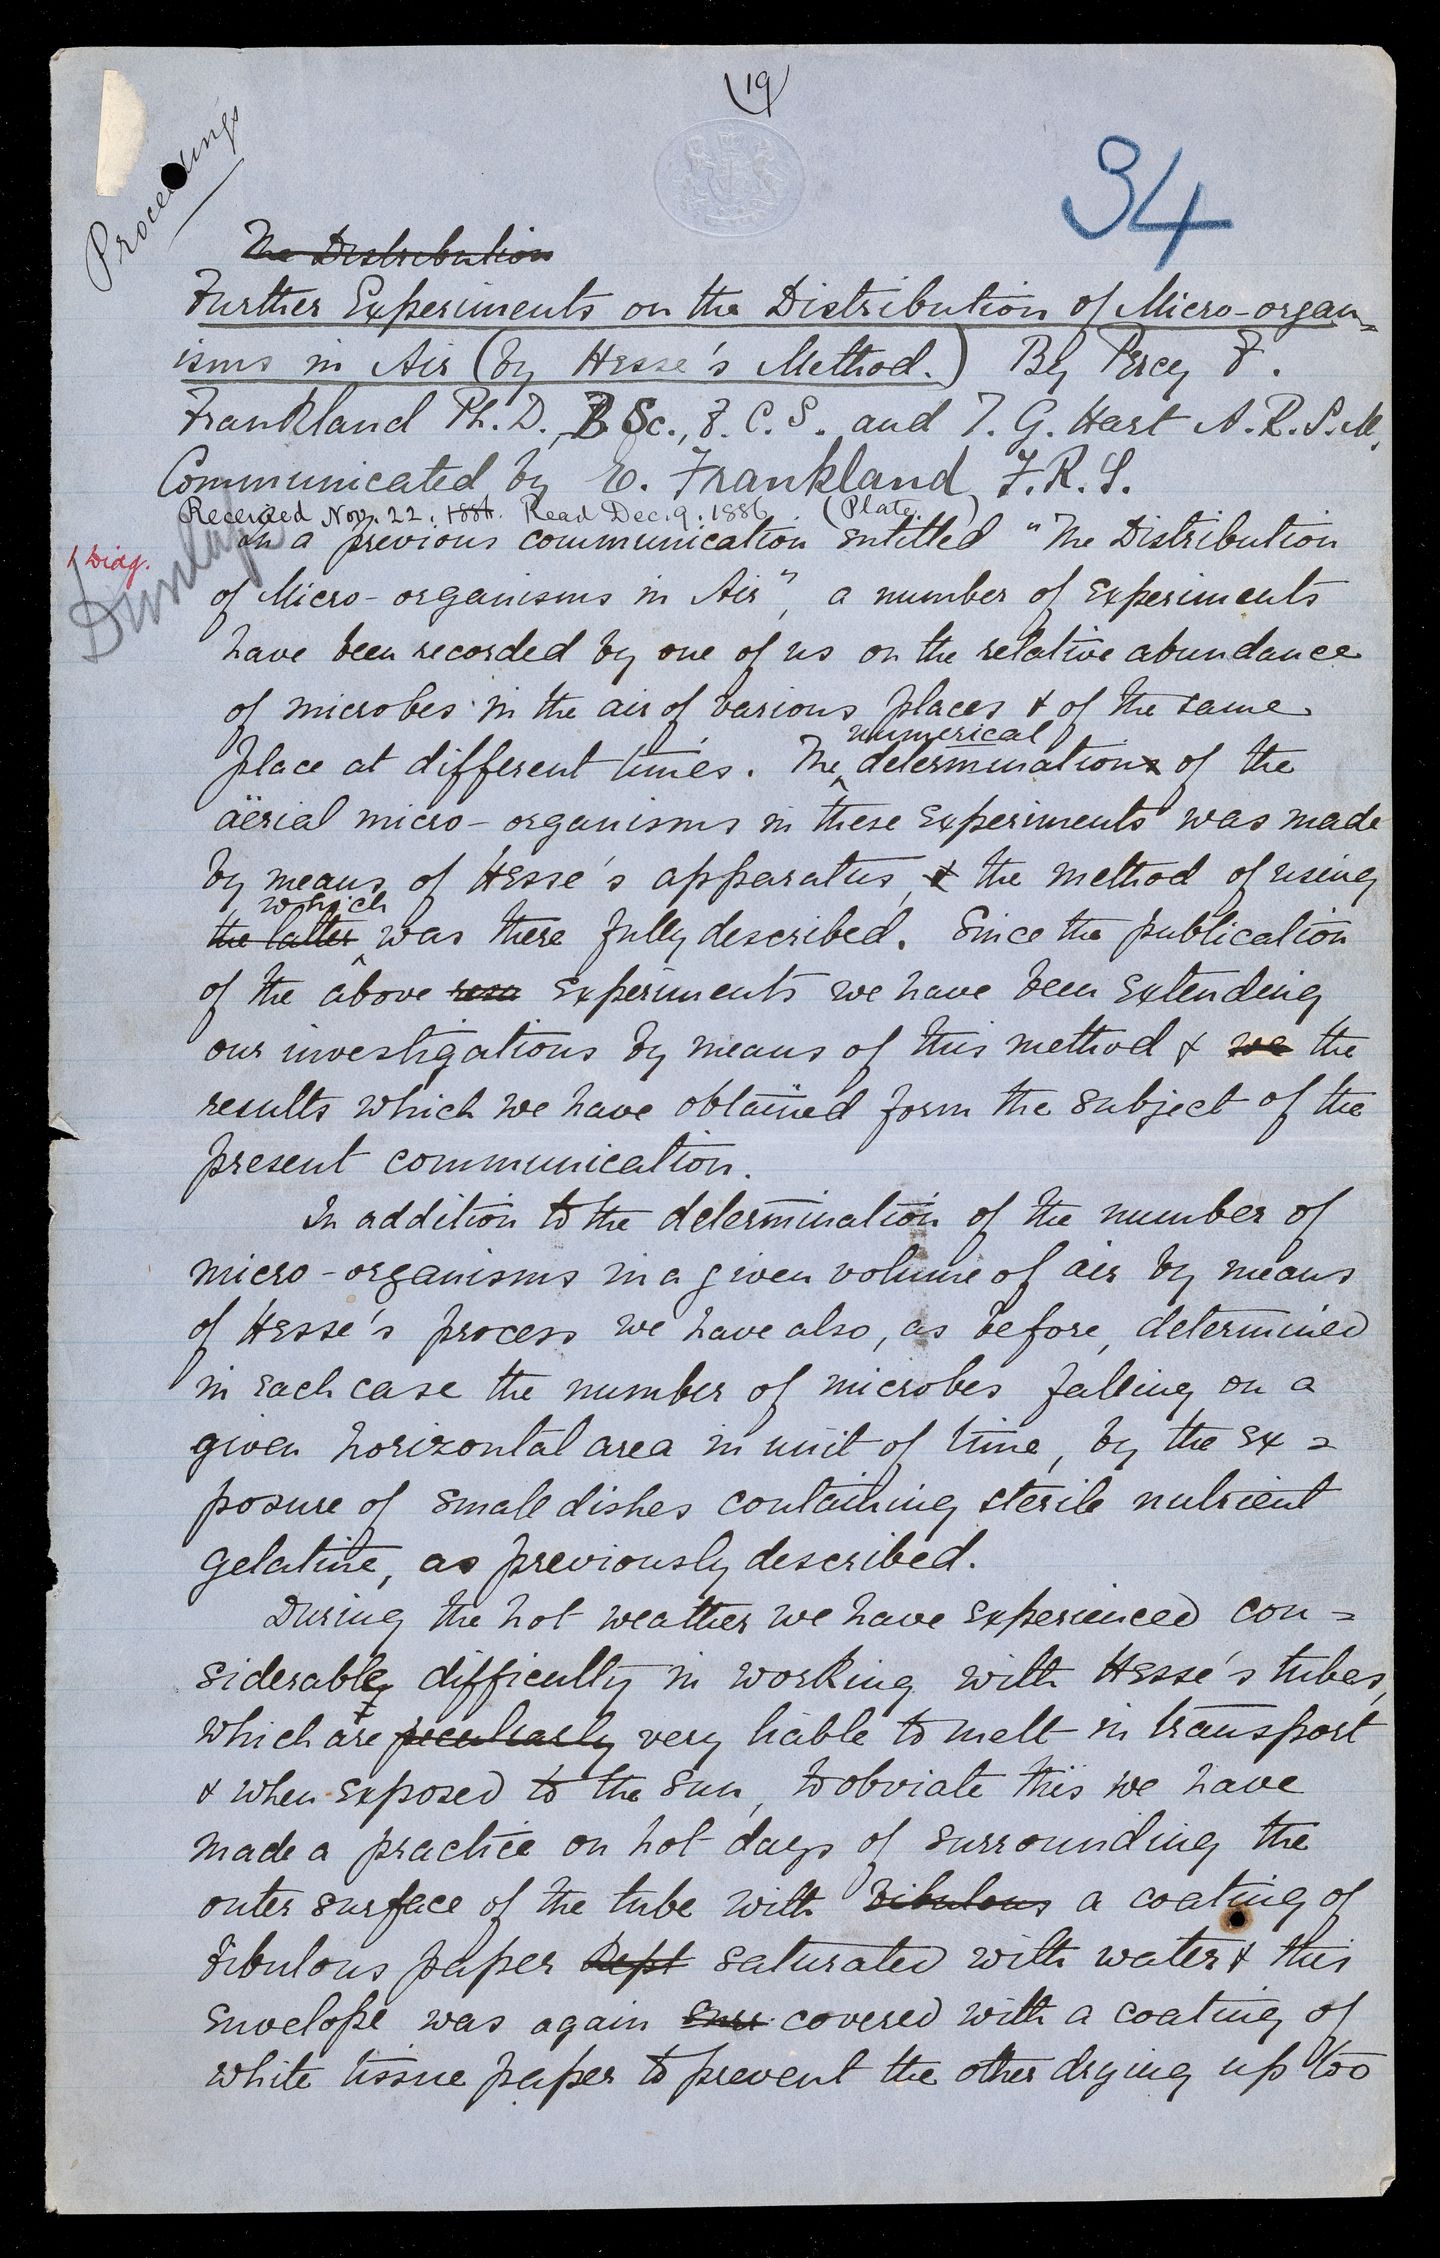 (19)
34
Proceedings
The Distribution
Further Experiments on the Distribution of Micro-organ=
isms in Air (by Hesse's Method.) By Percy F.
Frankland Ph.D., B Sc., F.C.S. and T. G. Hart A.R.S.M.
Communicated by E. Frankland, F.R.S.
Received Nov. 22. 1886. Read Dec. 9. 1886 (Plate )
1 Diag.
Dunlap
In a previous communication entitled "The Distribution
of Micro-organisms in Air", a number of experiments
have been recorded by one of us on the relative abundance
of microbes in the air of various places & of the same
numerical
place at different times. The determinations of the
aërial micro-organisms in these experiments was made
by means of Hesse's apparatus, & the method of using
which
the latter was there fully described. Since the publication
of the above experiments we have been extending
our investigations by means of this method & we the
results which we have obtained form the subject of the
present communication.
In addition to the determination of the number of
micro-organisms in a given volume of air by means
of Hesse's process we have also, as before, determined
in each case the number of microbes falling on a
given horizontal area in unit of time, by the ex=
posure of small dishes containing sterile nutrient
gelatine, as previously described.
During the hot weather we have experienced con=
siderable difficulty in working with Hesse's tubes,
which are peculiarly very liable to melt in transport
& when exposed to the sun, to obviate this we have
made a practice on hot days of surrounding the
outer surface of the tube with bibulous a coating of
bibulous paper kept saturated with water & this
envelope was again surr covered with a coating of
white tissue paper to prevent the other drying up too